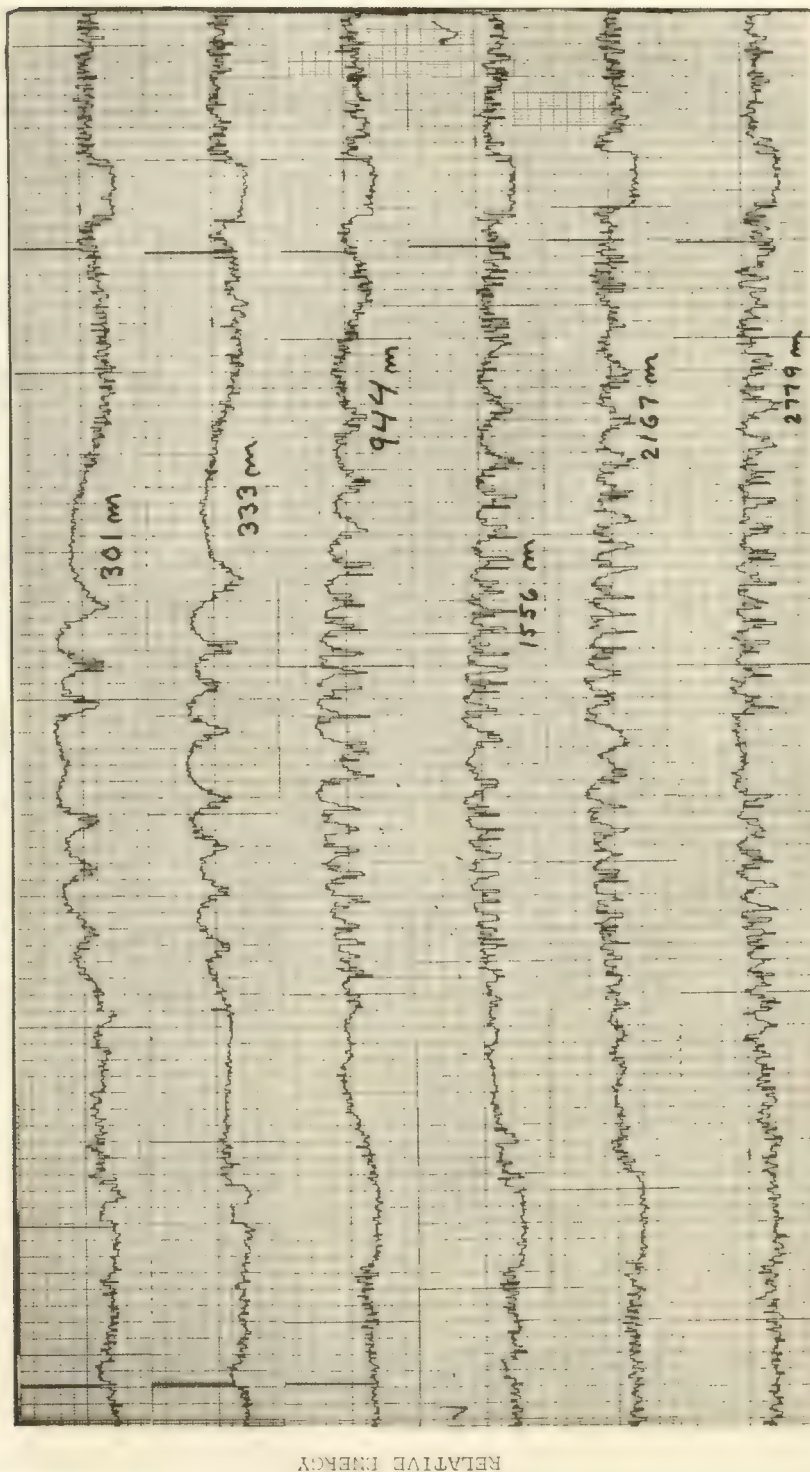 301 m
333 m
944 m
1556 m
2167 m
2779 m
RELATIVE ENERGY